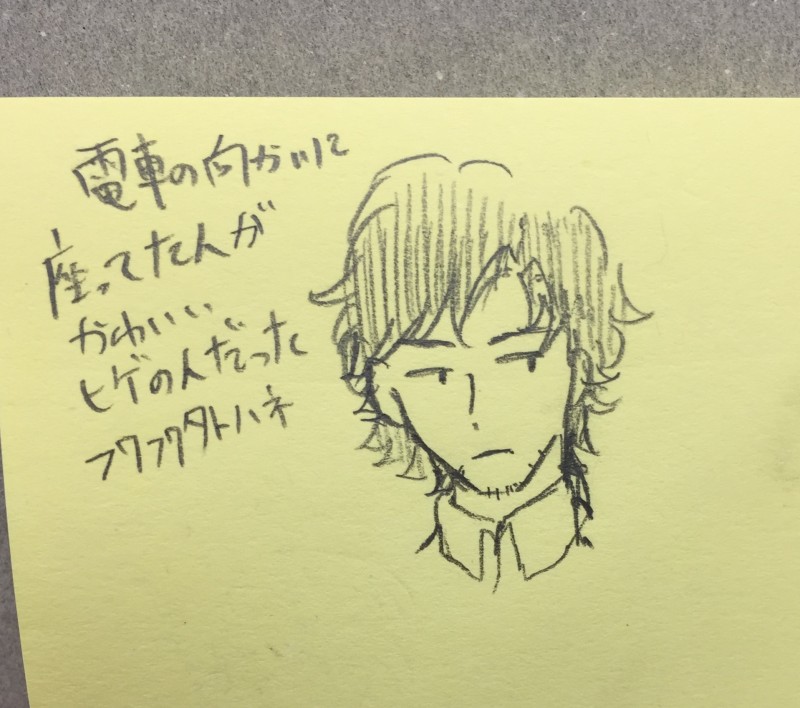 電車の向かいに
座ってたんが
かわいい
ヒゲの人だった
フワフワ外ハネ